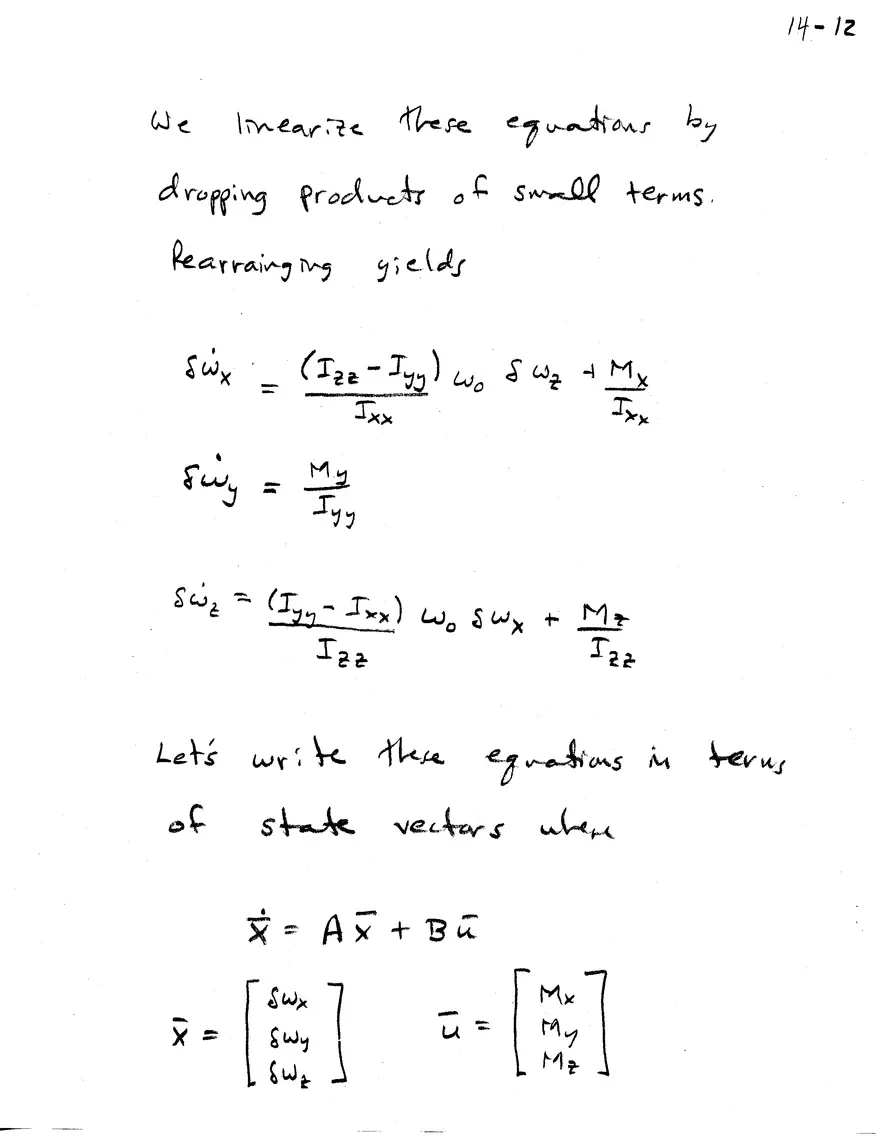 14-12
We linearize these equations by
dropping products of small terms.
Rearrainging yields
δω̇x = (Izz - Iyy)/Ixx ω₀ δωz + Mx/Ixx
δω̇y = My/Iyy
δω̇z = (Iyy - Ixx)/Izz ω₀ δωx + Mz/Izz
Let's write these equations in terms
of state vectors where
ẋ̄ = A x̄ + B ū
x̄ = [δωx δωy δωz] ū = [Mx My Mz]